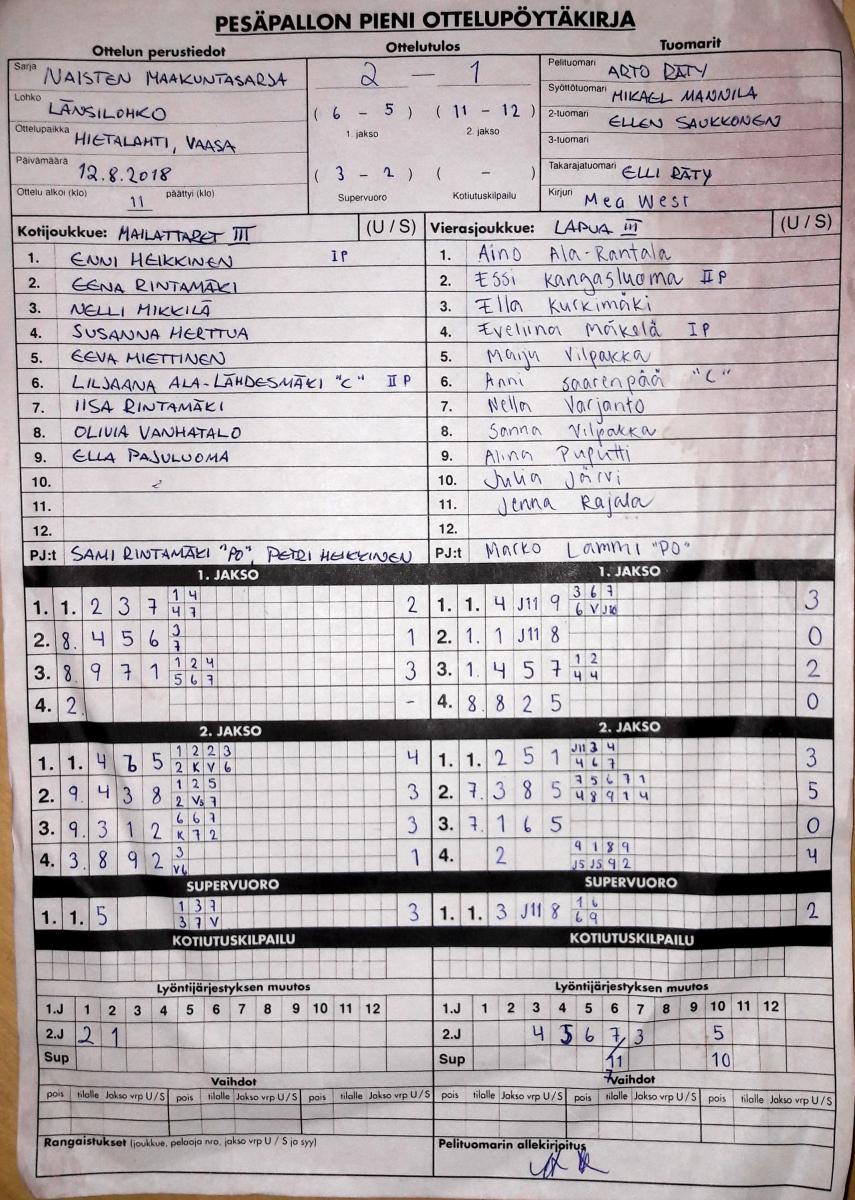 PESÄPALLON PIENI OTTELUPÖYTÄKIRJA
Ottelun perustiedot Ottelutulos Tuomarit
Sarja NAISTEN MAAKUNTASARJA
Lohko LÄNSILOHKO
Ottelupaikka HIETALAHTI, VAASA
Päivämäärä 12.8.2018
Ottelu alkoi (klo) 11 päättyi (klo)
2 — 1
( 6 - 5 ) ( 11 - 12 )
1. jakso 2. jakso
( 3 - 2 ) ( - )
Supervuoro Kotiutuskilpailu
Pelituomari ARTO RÄTY
Syöttötuomari MIKAEL MANNILA
2-tuomari ELLEN SAUKKONEN
3-tuomari
Takarajatuomari ELLI RÄTY
Kirjuri Mea West
Kotijoukkue: MAILATTARET III (U / S)
1. ENNI HEIKKINEN IP
2. EENA RINTAMÄKI
3. NELLI MIKKILÄ
4. SUSANNA HERTTUA
5. EEVA MIETTINEN
6. LILJAANA ALA-LÄHDESMÄKI "C" II P
7. IISA RINTAMÄKI
8. OLIVIA VANHATALO
9. ELLA PAJULUOMA
10.
11.
12.
PJ:t SAMI RINTAMÄKI "PO", PETRI HEIKKINEN
Vierasjoukkue: LAPUA III (U / S)
1. Aino Ala-Rantala
2. Essi Kangasluoma II P
3. Ella Kurkimäki
4. Eveliina Mäkelä IP
5. Maiju Vilpakka
6. Anni Saarenpää "C"
7. Nella Varjanto
8. Sanna Vilpakka
9. Alina Puputti
10. Julia Järvi
11. Jenna Rajala
12.
PJ:t Marko Lammi "PO"
1. JAKSO
1. 1. 2 3 7 1 4 2
4 7
2. 8. 4 5 6 3 1
7
3. 8. 9 7 1 1 2 4 3
5 6 7
4. 2. -
1. JAKSO
1. 1. 4 J11 9 3 6 7 3
6 V J10
2. 1. 1 J11 8 0
3. 1. 4 5 7 1 2 2
4 4
4. 8. 8 2 5 0
2. JAKSO
1. 1. 4 5 1 2 2 3 4
2 K V 6
2. 9. 4 3 8 1 2 5 3
2 V5 7
3. 9. 3 1 2 6 6 7 3
K 7 2
4. 3. 8 9 2 3 1
V6
2. JAKSO
1. 1. 2 5 1 J11 3 4 3
4 6 7
2. 7. 3 8 5 7 5 6 7 1 5
4 8 9 1 4
3. 7. 1 6 5 0
4. 2 9 1 8 9 4
J5 J5 9 2
SUPERVUORO
1. 1. 5 1 3 7 3
3 7 V
SUPERVUORO
1. 1. 3 J11 8 1 6 2
6 9
KOTIUTUSKILPAILU KOTIUTUSKILPAILU
Lyöntijärjestyksen muutos
1.J 1 2 3 4 5 6 7 8 9 10 11 12
2.J 2 1
Sup
Lyöntijärjestyksen muutos
1.J 1 2 3 4 5 6 7 8 9 10 11 12
2.J 4 5 6 7 3 5
Sup 11 10
7
Vaihdot Vaihdot
pois tilalle Jakso vrp U / S pois tilalle Jakso vrp U / S pois tilalle Jakso vrp U / S
pois tilalle Jakso vrp U / S pois tilalle Jakso vrp U / S pois tilalle Jakso vrp U / S
Rangaistukset (joukkue, pelaaja nro, jakso vrp U / S ja syy)
Pelituomarin allekirjoitus